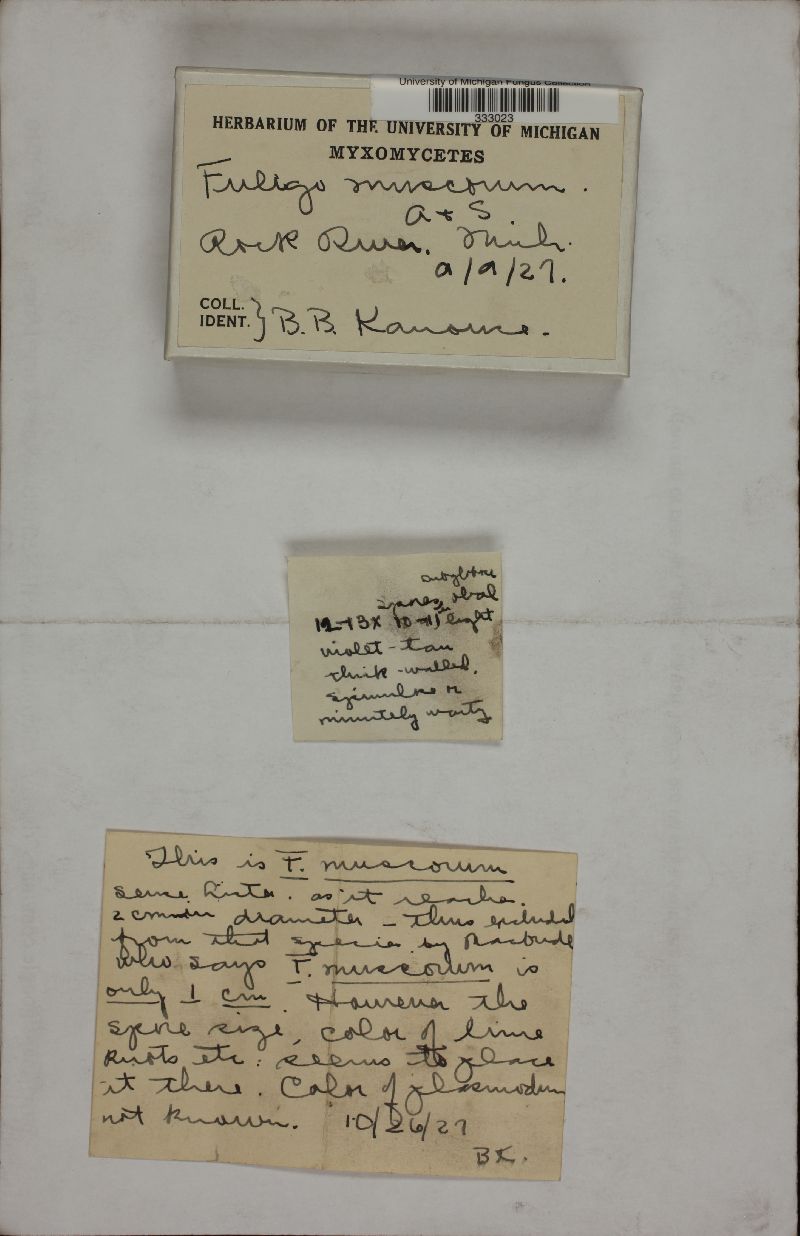 University of Michigan Fungus Collection
333023
HERBARIUM OF THE UNIVERSITY OF MICHIGAN
MYXOMYCETES
Fuligo muscorum.
A + S.
Rock River. Mich.
9/9/27.
COLL.
IDENT. } B. B. Kanouse.
subglobose
spores, oval
12-13 x 10-11 light
violet-tan
thick-walled.
spinulose or
minutely warty
This is F. muscorum
sense Lister. as it reaches
2 cm in diameter - thus excluded
from that species by Macbride
who says F. muscorum is
only 1 cm. However the
spore size, color of lime
knots etc: seems to place
it there. Color of plasmodium
not known. 10/26/27
BK.